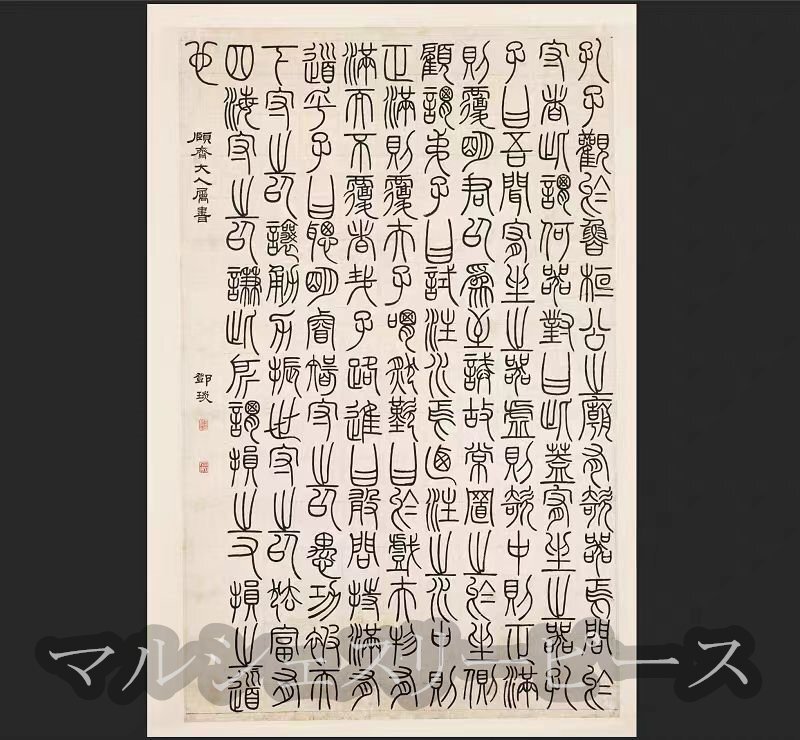 孔子觀於魯桓公之廟有欹器焉問於
守者此謂何器對曰此蓋宥坐之器孔
子曰吾聞宥坐之器虛則欹中則正滿
則覆明君以爲至誡故常置之於坐側
顧謂弟子曰試注水焉乃注之水中則
正滿則覆夫子喟然歎曰於戲夫物有
滿而不覆者哉子路進曰敢問持滿有
道乎子曰聰明睿智守之以愚功被天
下守之以讓勇力振世守之以怯富有
四海守之以謙此所謂損之又損之道
也
頤齋大人屬書
鄧琰
マルシェスリーピース